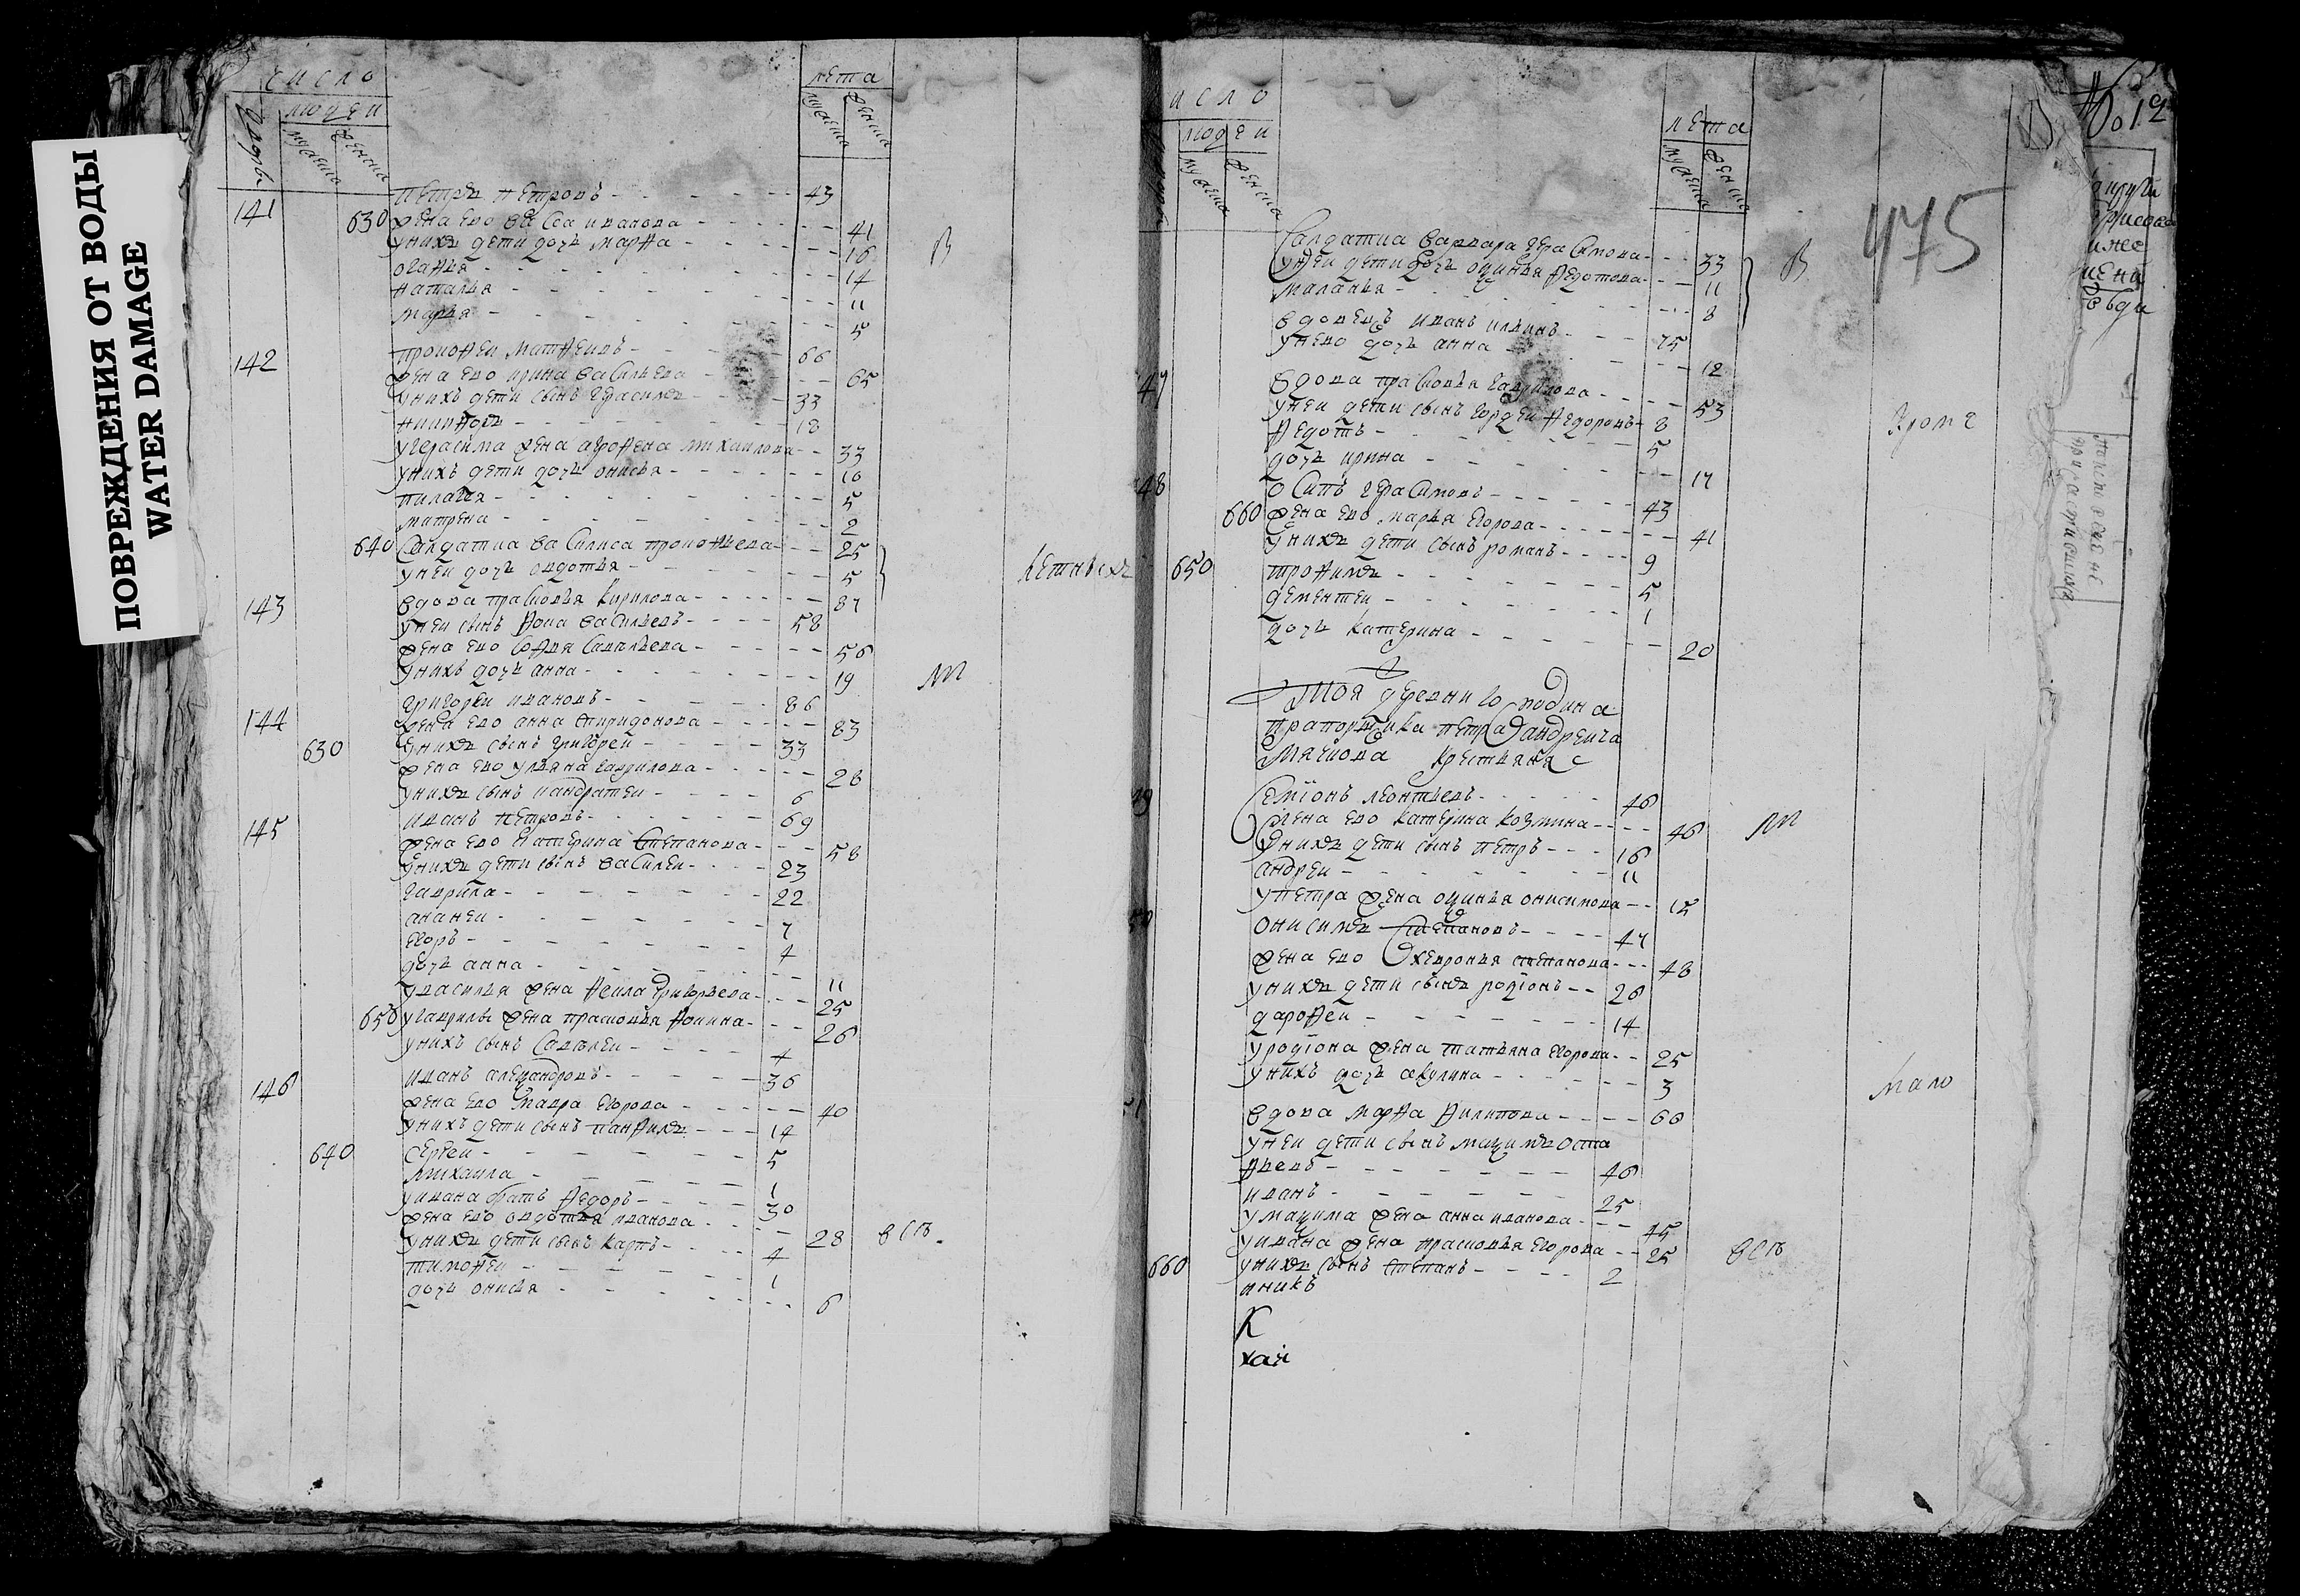 ПОВРЕЖДЕНИЯ ОТ ВОДЫ
WATER DAMAGE
число
людеи
дворы
мужеска
женска
лета
мужеска
женска
141 петръ петровъ 43
630 жена ево васса иванова 41
у нихъ дети дочь марфа 16
огафья 14
наталья 11
марья 5
В
142 прокофеи матфеивъ 66
жена ево ирина василева 65
у нихъ дети сынъ герасимъ 33
никифоръ 18
у герасима жена агрофена михаилова 33
у нихъ дети дочь онисья 10
пилагея 5
матрена 2
640 салдатка василиса прокофьева 25
у неи дочь овдотья 5
143 вдова прасковья кирилова 87
у неи сынъ фока васильевъ 58
жена ево софья савельева 56
у нихъ дочь анна 19
144 григореи ивановъ 86
жена ево анна спиридонова 83
630 у нихъ сынъ григореи 33
жена ево ульяна гаврилова 28
у нихъ сынъ кандратеи 6
145 иванъ петровъ 69
жена ево катерина степанова 58
у нихъ дети сынъ василеи 23
гаврила 22
ананеи 7
егоръ 4
дочь анна 11
у василья жена фекла григорьева 25
650 у гаврилы жена прасковья фокина 26
у нихъ сынъ савелеи 4
146 иванъ александровъ 36
жена ево мавра егорова 40
у нихъ дети сынъ панфилъ 14
640 сергеи 5
михаила 1
у ивана братъ федоръ 30
жена ево овдотья иванова 28
у нихъ дети сынъ карпъ 4
тимофеи 1
дочь онисья 6
всп
число
людеи
мужеска
женска
лета
мужеска
женска
475
салдатка варвара герасимова 33
у неи дети дочь оксинья федотова 11
маланья 8
В
вдовецъ иванъ ильинъ 75
у нево дочь анна 12
47 вдова прасковья гаврилова 53
у неи дети сынъ гордеи федоровъ 8
федотъ 5
дочь ирина 17
кроме
48 осипъ герасимовъ 43
660 жена ево марья егорова 41
у нихъ дети сынъ романъ 9
650 трофимъ 5
дементеи 1
дочь катерина 20
тоя деревни господина
прапорщика петра андреича
мячкова крестьяня
49 семионъ леонтьевъ 46
жена ево катерина козмина 46
у нихъ дети сынъ петръ 16
андреи 11
у петра жена оксинья онисимова 15
онисимъ степановъ 47
жена ево хевронья степанова 48
у нихъ дети сынъ родионъ 26
дарофеи 14
у родиона жена татьяна егорова 25
у нихъ дочь акулина 3
мало
вдова марфа филипова 60
у неи дети сынъ максимъ оста
фьевъ 46
иванъ 25
у максима жена анна иванова 45
у ивана жена прасковья егорова 25
660 у нихъ сынъ степанъ 2
всп